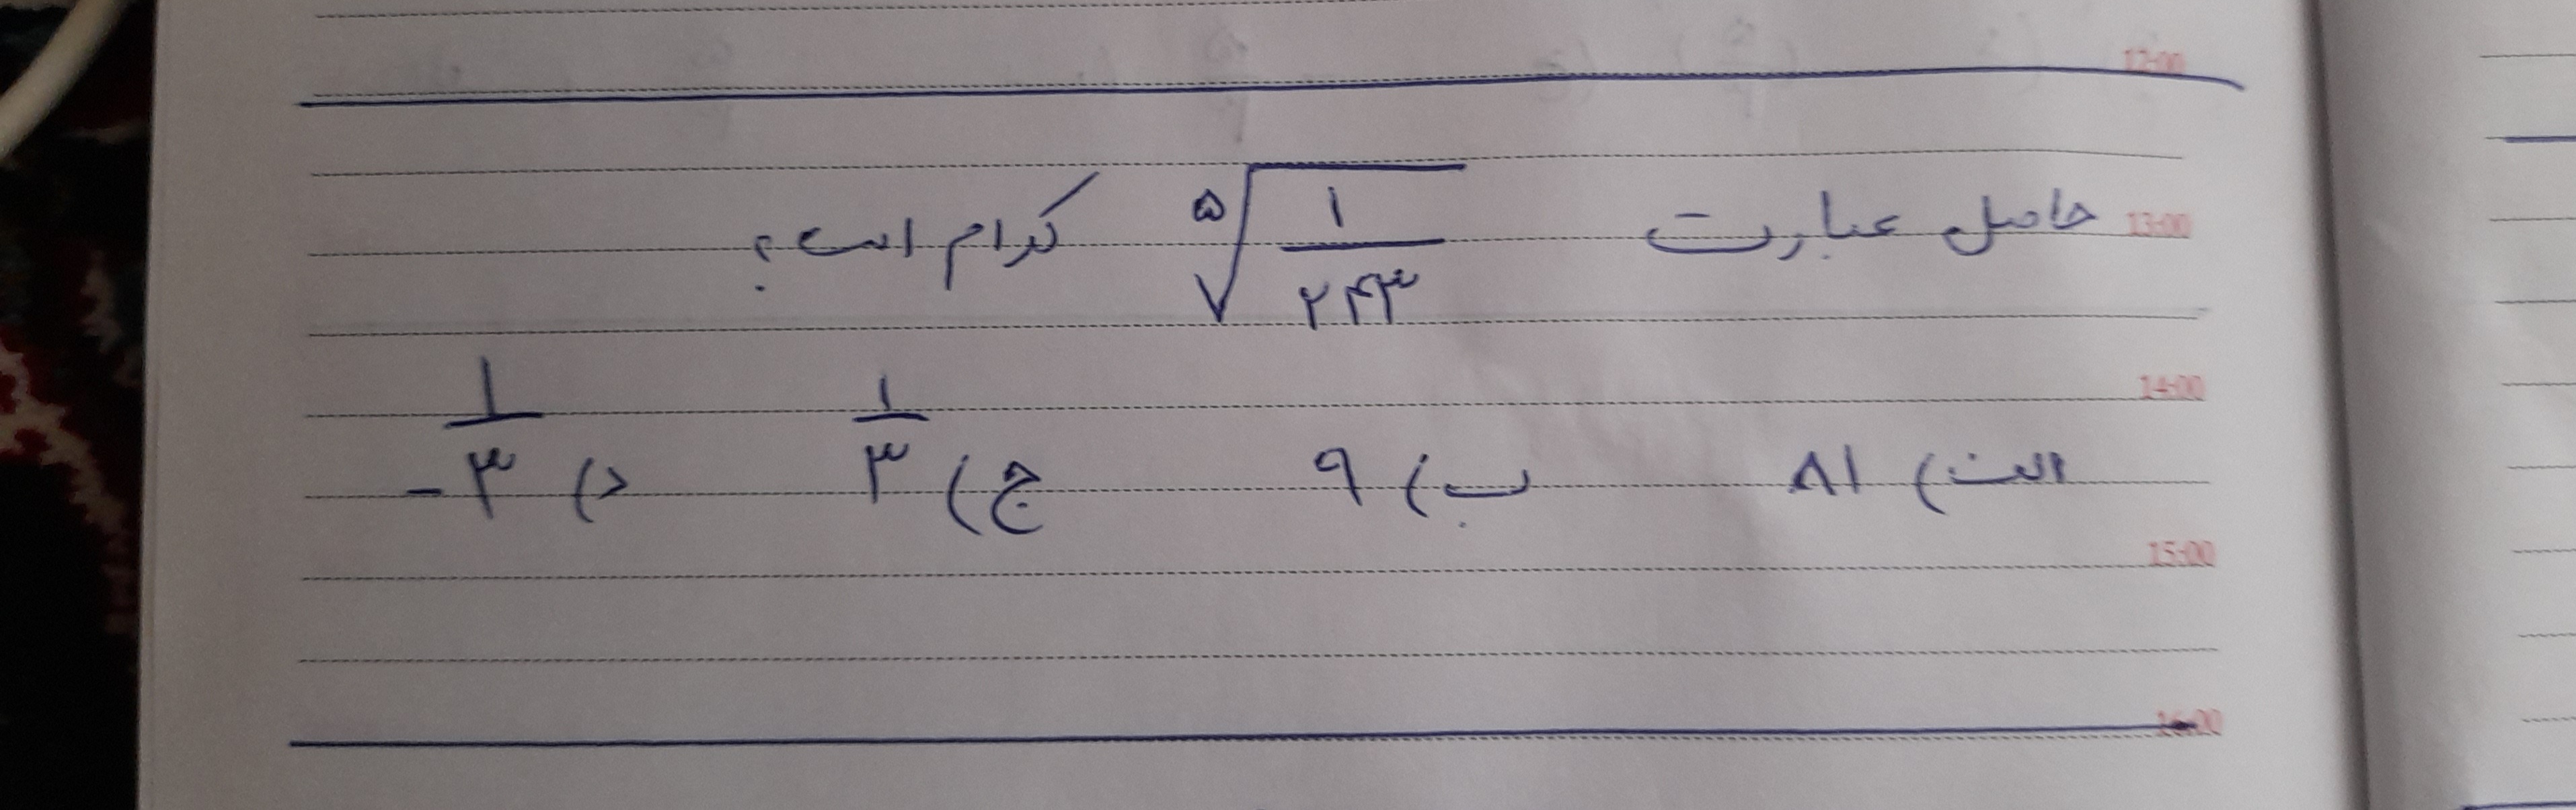 12:00
حاصل عبارت ⁵√(۱/۲۴۳) کدام است؟
13:00
14:00
الف) ۸۱ ب) ۹ ج) ۱/۳ د) ۱/-۳
15:00
16:00